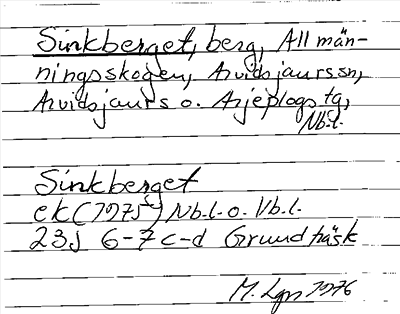 Sinkberget, berg, Allmän-
ningsskogen, Arvidsjaurs sn,
Arvidsjaurs o. Arjeplogs tg,
Nb.l.
Sinkberget
ek (1975) Nb.l. o. Vb.l.
23J 6-7 c-d Grundträsk
M. Lgn 1976